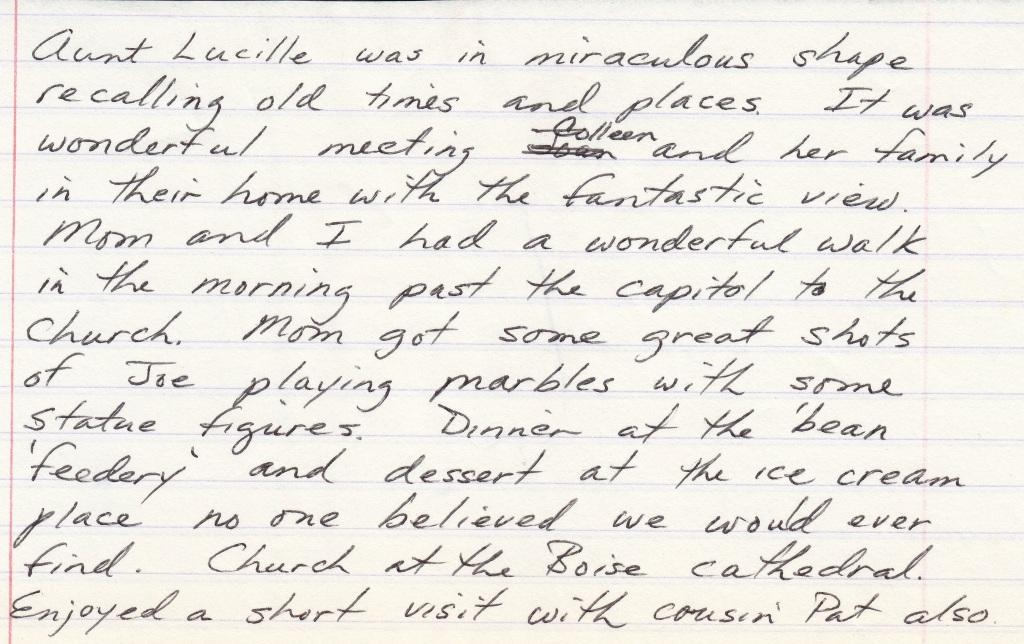 Aunt Lucille was in miraculous shape
recalling old times and places. It was
wonderful meeting Colleen and her family
in their home with the fantastic view.
Mom and I had a wonderful walk
in the morning past the capitol to the
Church. Mom got some great shots
of Joe playing marbles with some
statue figures. Dinner at the 'bean
'feedery' and dessert at the ice cream
place no one believed we would ever
find. Church at the Boise cathedral.
Enjoyed a short visit with cousin Pat also.